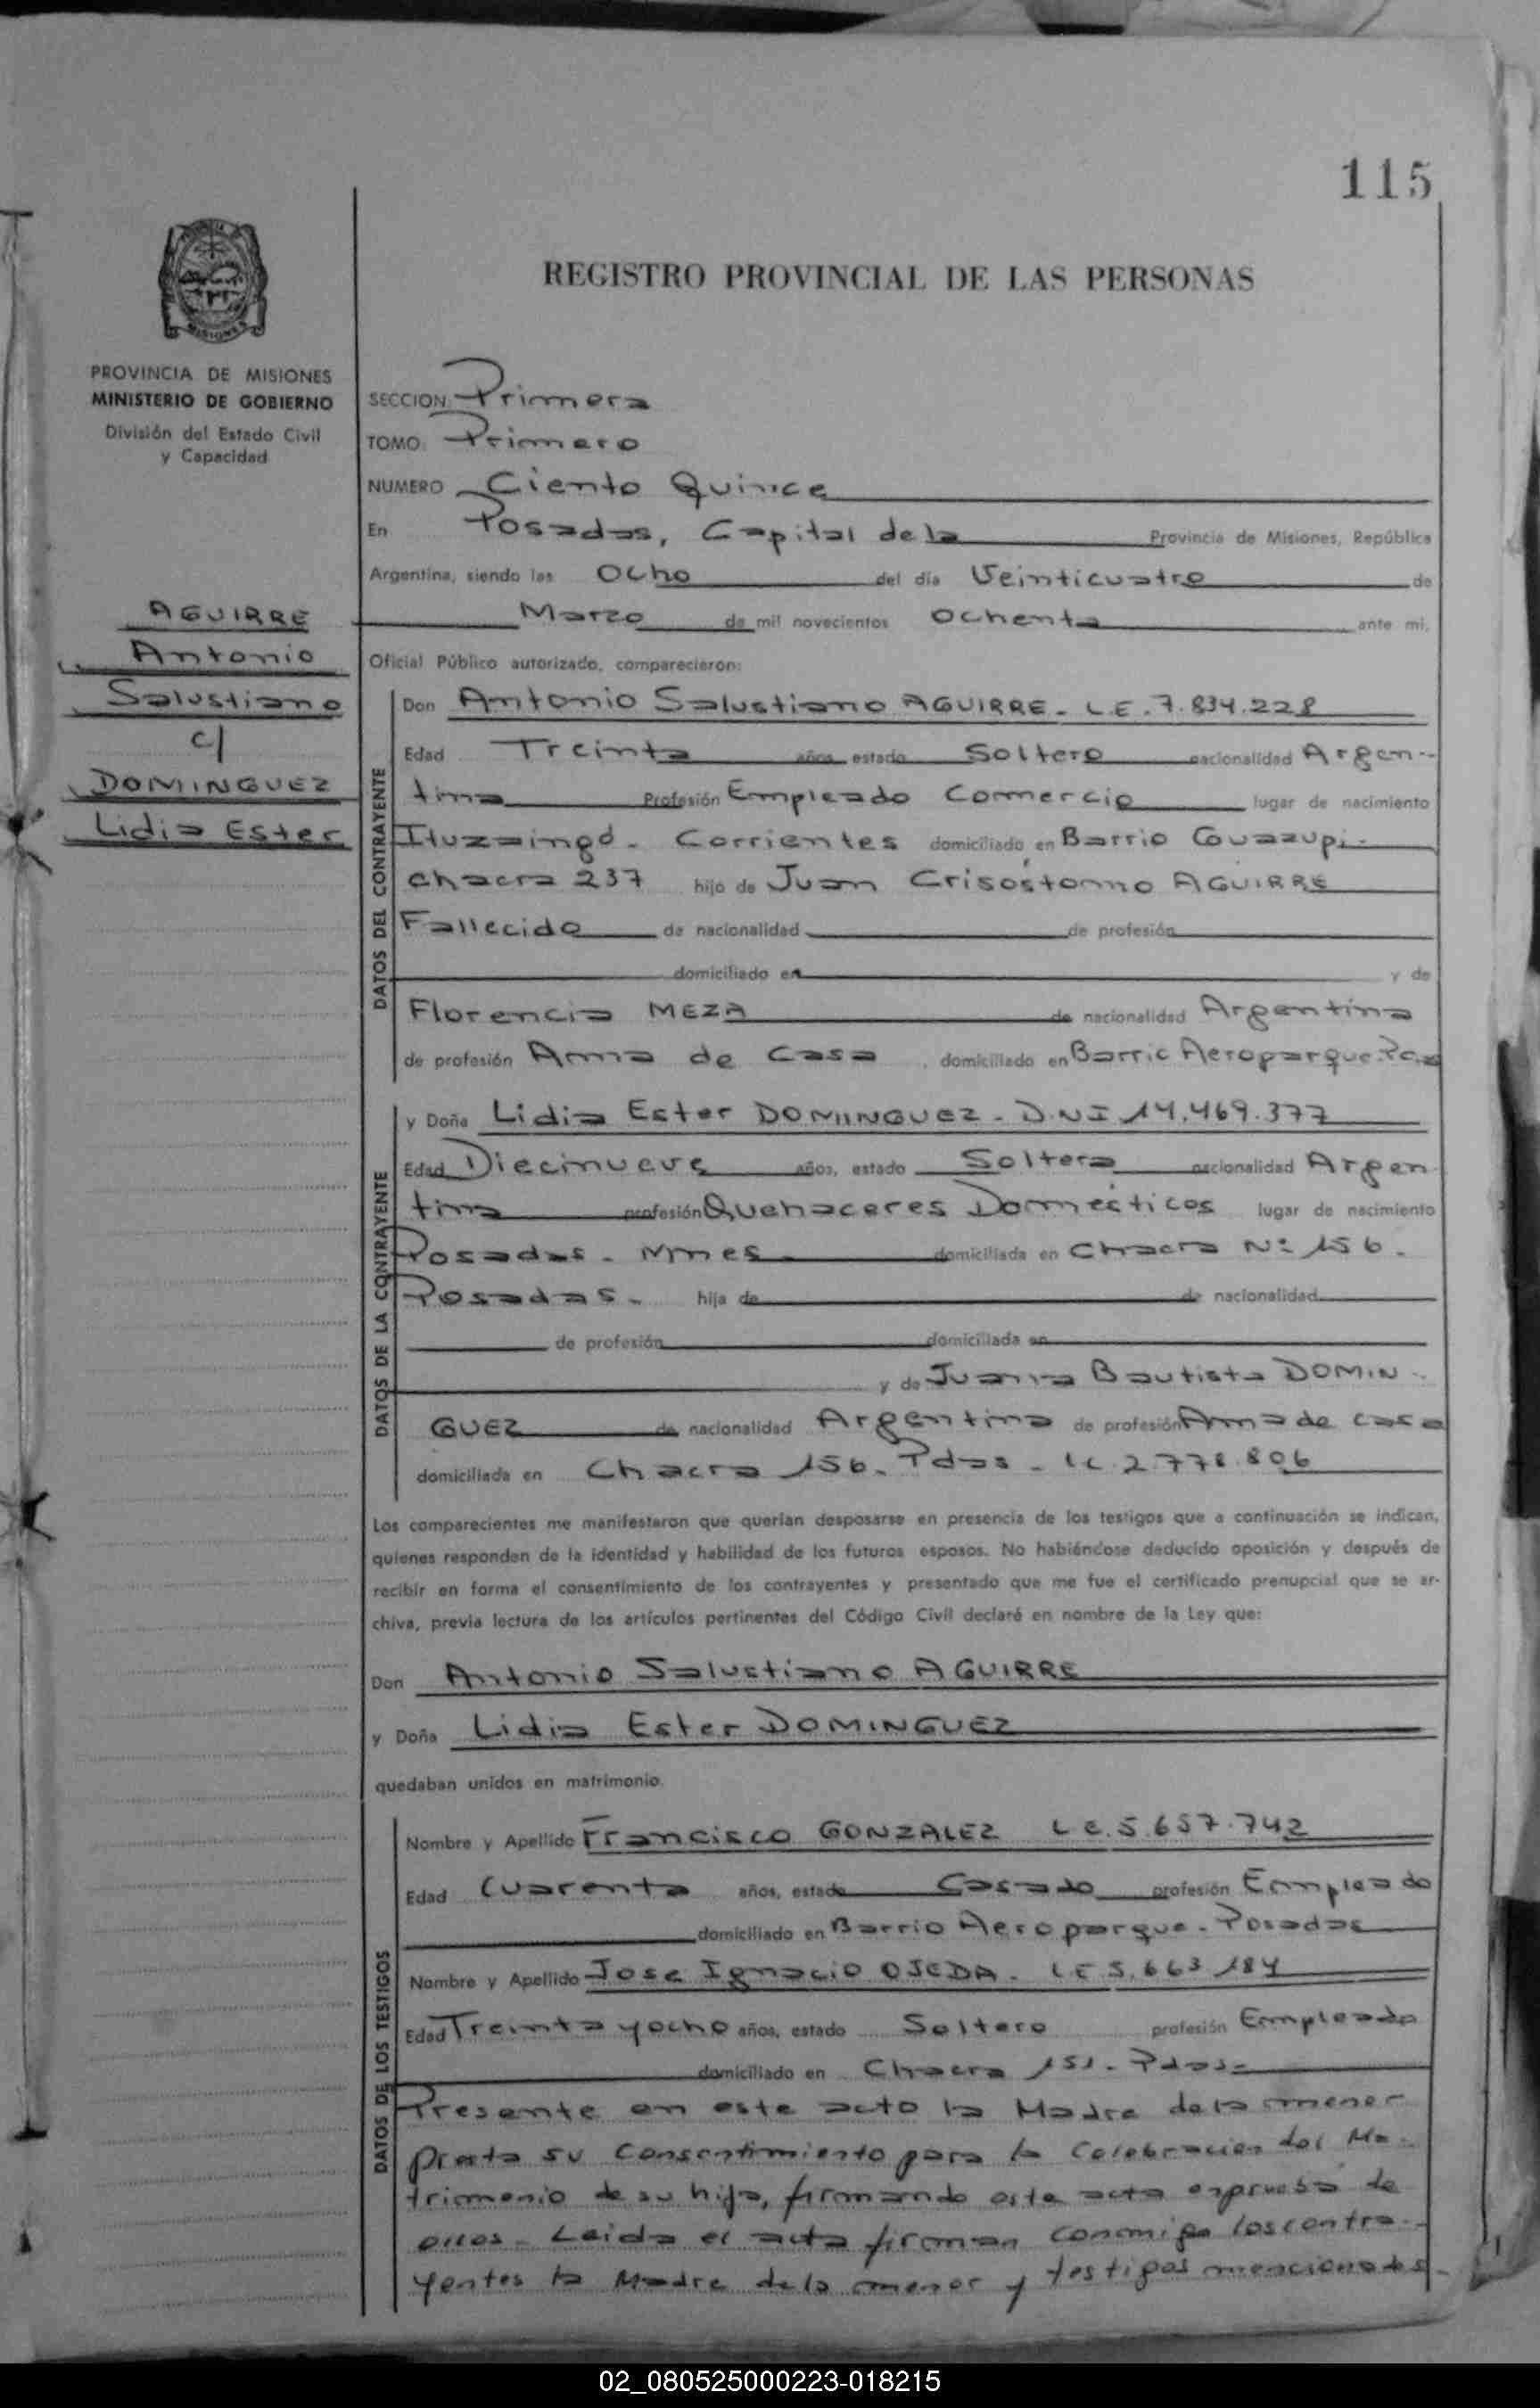 115
REGISTRO PROVINCIAL DE LAS PERSONAS
MISIONES
PROVINCIA DE MISIONES
MINISTERIO DE GOBIERNO
División del Estado Civil
y Capacidad
AGUIRRE
Antonio
Salustiano
c/
DOMINGUEZ
Lidia Ester
SECCION: Primera
TOMO: Primero
NUMERO Ciento Quince
En Posadas, Capital de la Provincia de Misiones, República
Argentina, siendo las Ocho del día Veinticuatro de
Marzo de mil novecientos Ochenta ante mi,
Oficial Público autorizado, comparecieron:
DATOS DEL CONTRAYENTE
Don Antonio Salustiano AGUIRRE - L.E. 7.834.228
Edad Treinta años, estado Soltero nacionalidad Argen-
tina Profesión Empleado Comercio lugar de nacimiento
Ituzaingó - Corrientes domiciliado en Barrio Guazupi-
chacra 237 hijo de Juan Crisóstomo AGUIRRE
Fallecido de nacionalidad de profesión
domiciliado en y de
Florencia MEZA de nacionalidad Argentina
de profesión Ama de Casa , domiciliado en Barrio Aeroparque
DATOS DE LA CONTRAYENTE
y Doña Lidia Ester DOMINGUEZ - D.N.I 14.469.377
Edad Diecinueve años, estado Soltera nacionalidad Argen
tina profesión Quehaceres Domésticos lugar de nacimiento
Posadas - Mnes domiciliada en Chacra Nº 156.
Posadas. hija de de nacionalidad
de profesión domiciliada en
y de Juana Bautista DOMIN-
GUEZ de nacionalidad Argentina de profesión Ama de casa
domiciliada en Chacra 156. Pdas - LC. 2.778.806
Los comparecientes me manifestaron que querían desposarse en presencia de los testigos que a continuación se indican,
quienes responden de la identidad y habilidad de los futuros esposos. No habiéndose deducido oposición y después de
recibir en forma el consentimiento de los contrayentes y presentado que me fue el certificado prenupcial que se ar-
chiva, previa lectura de los artículos pertinentes del Código Civil declaré en nombre de la Ley que:
Don Antonio Salustiano AGUIRRE
y Doña Lidia Ester DOMINGUEZ
quedaban unidos en matrimonio.
DATOS DE LOS TESTIGOS
Nombre y Apellido Francisco GONZALEZ L.E. 5.657.742
Edad Cuarenta años, estado Casado profesión Empleado
domiciliado en Barrio Aeroparque - Posadas
Nombre y Apellido Jose Ignacio OJEDA - L E 5.663.184
Edad Treinta y ocho años, estado Soltero profesión Empleado
domiciliado en Chacra 151 - Pdas-
Presente en este acto la Madre de la menor
presta su consentimiento para la Celebracion del Ma-
trimonio de su hija, firmando este acta en prueba de
ellos - Leida el acta firman conmigo los contra-
yentes la Madre de la menor y testigos mencionados -
02_080525000223-018215